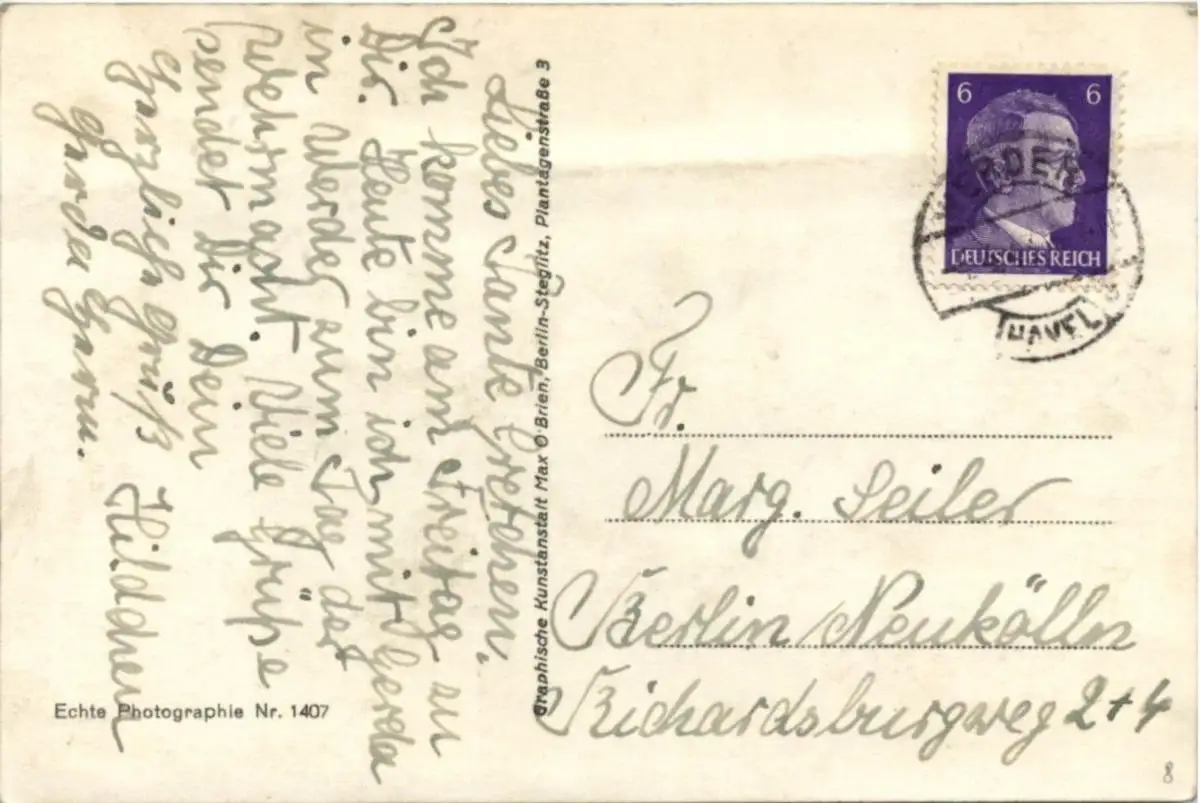 Liebes Tante Gretchen.
Ich komme am Freitag zu
Dir. Heute bin ich mit Gerda
in Werder zum Tag der
Wehrmacht. Viele Grüße
sendet Dir Dein
Hildchen
Herzliche Grüß
Gerda
Graphische Kunstanstalt Max O'Brien, Berlin-Steglitz, Plantagenstraße 3
Echte Photographie Nr. 1407
6 6
DEUTSCHES REICH
WERDER
(HAVEL)
Fr.
Marg. Seiler
Berlin Neukölln
Richardsburgweg 2+4
8